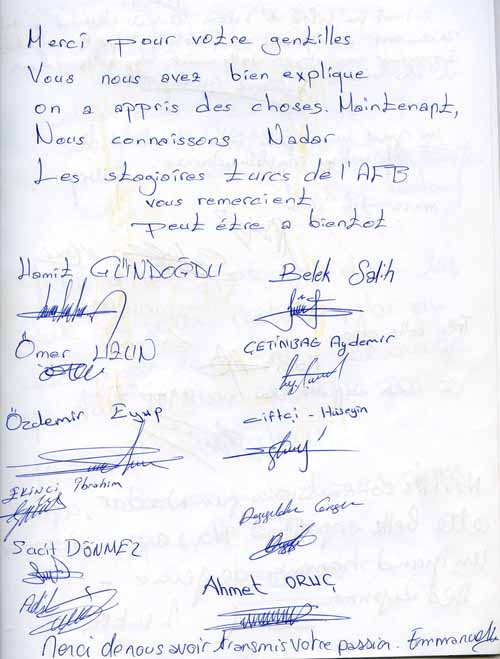 Merci pour votre gentilles
Vous nous avez bien explique
on a appris des choses. Maintenant,
Nous connaissons Nadar
Les stagiaires turcs de l'AFB
vous remercient
peut étre a bientot.
Hamit GÜNDOĞDU
Belek Salih
Ömer UZUN
ÇETİNBAG Aydemir
Özdemir Eyup
Ciftçi - Hüseyin
EKİNCİ İbrahim
Sacit DÖNMEZ
Adil
Ahmet ORUÇ
Merci de nous avoir transmis votre passion. Emmanuelle